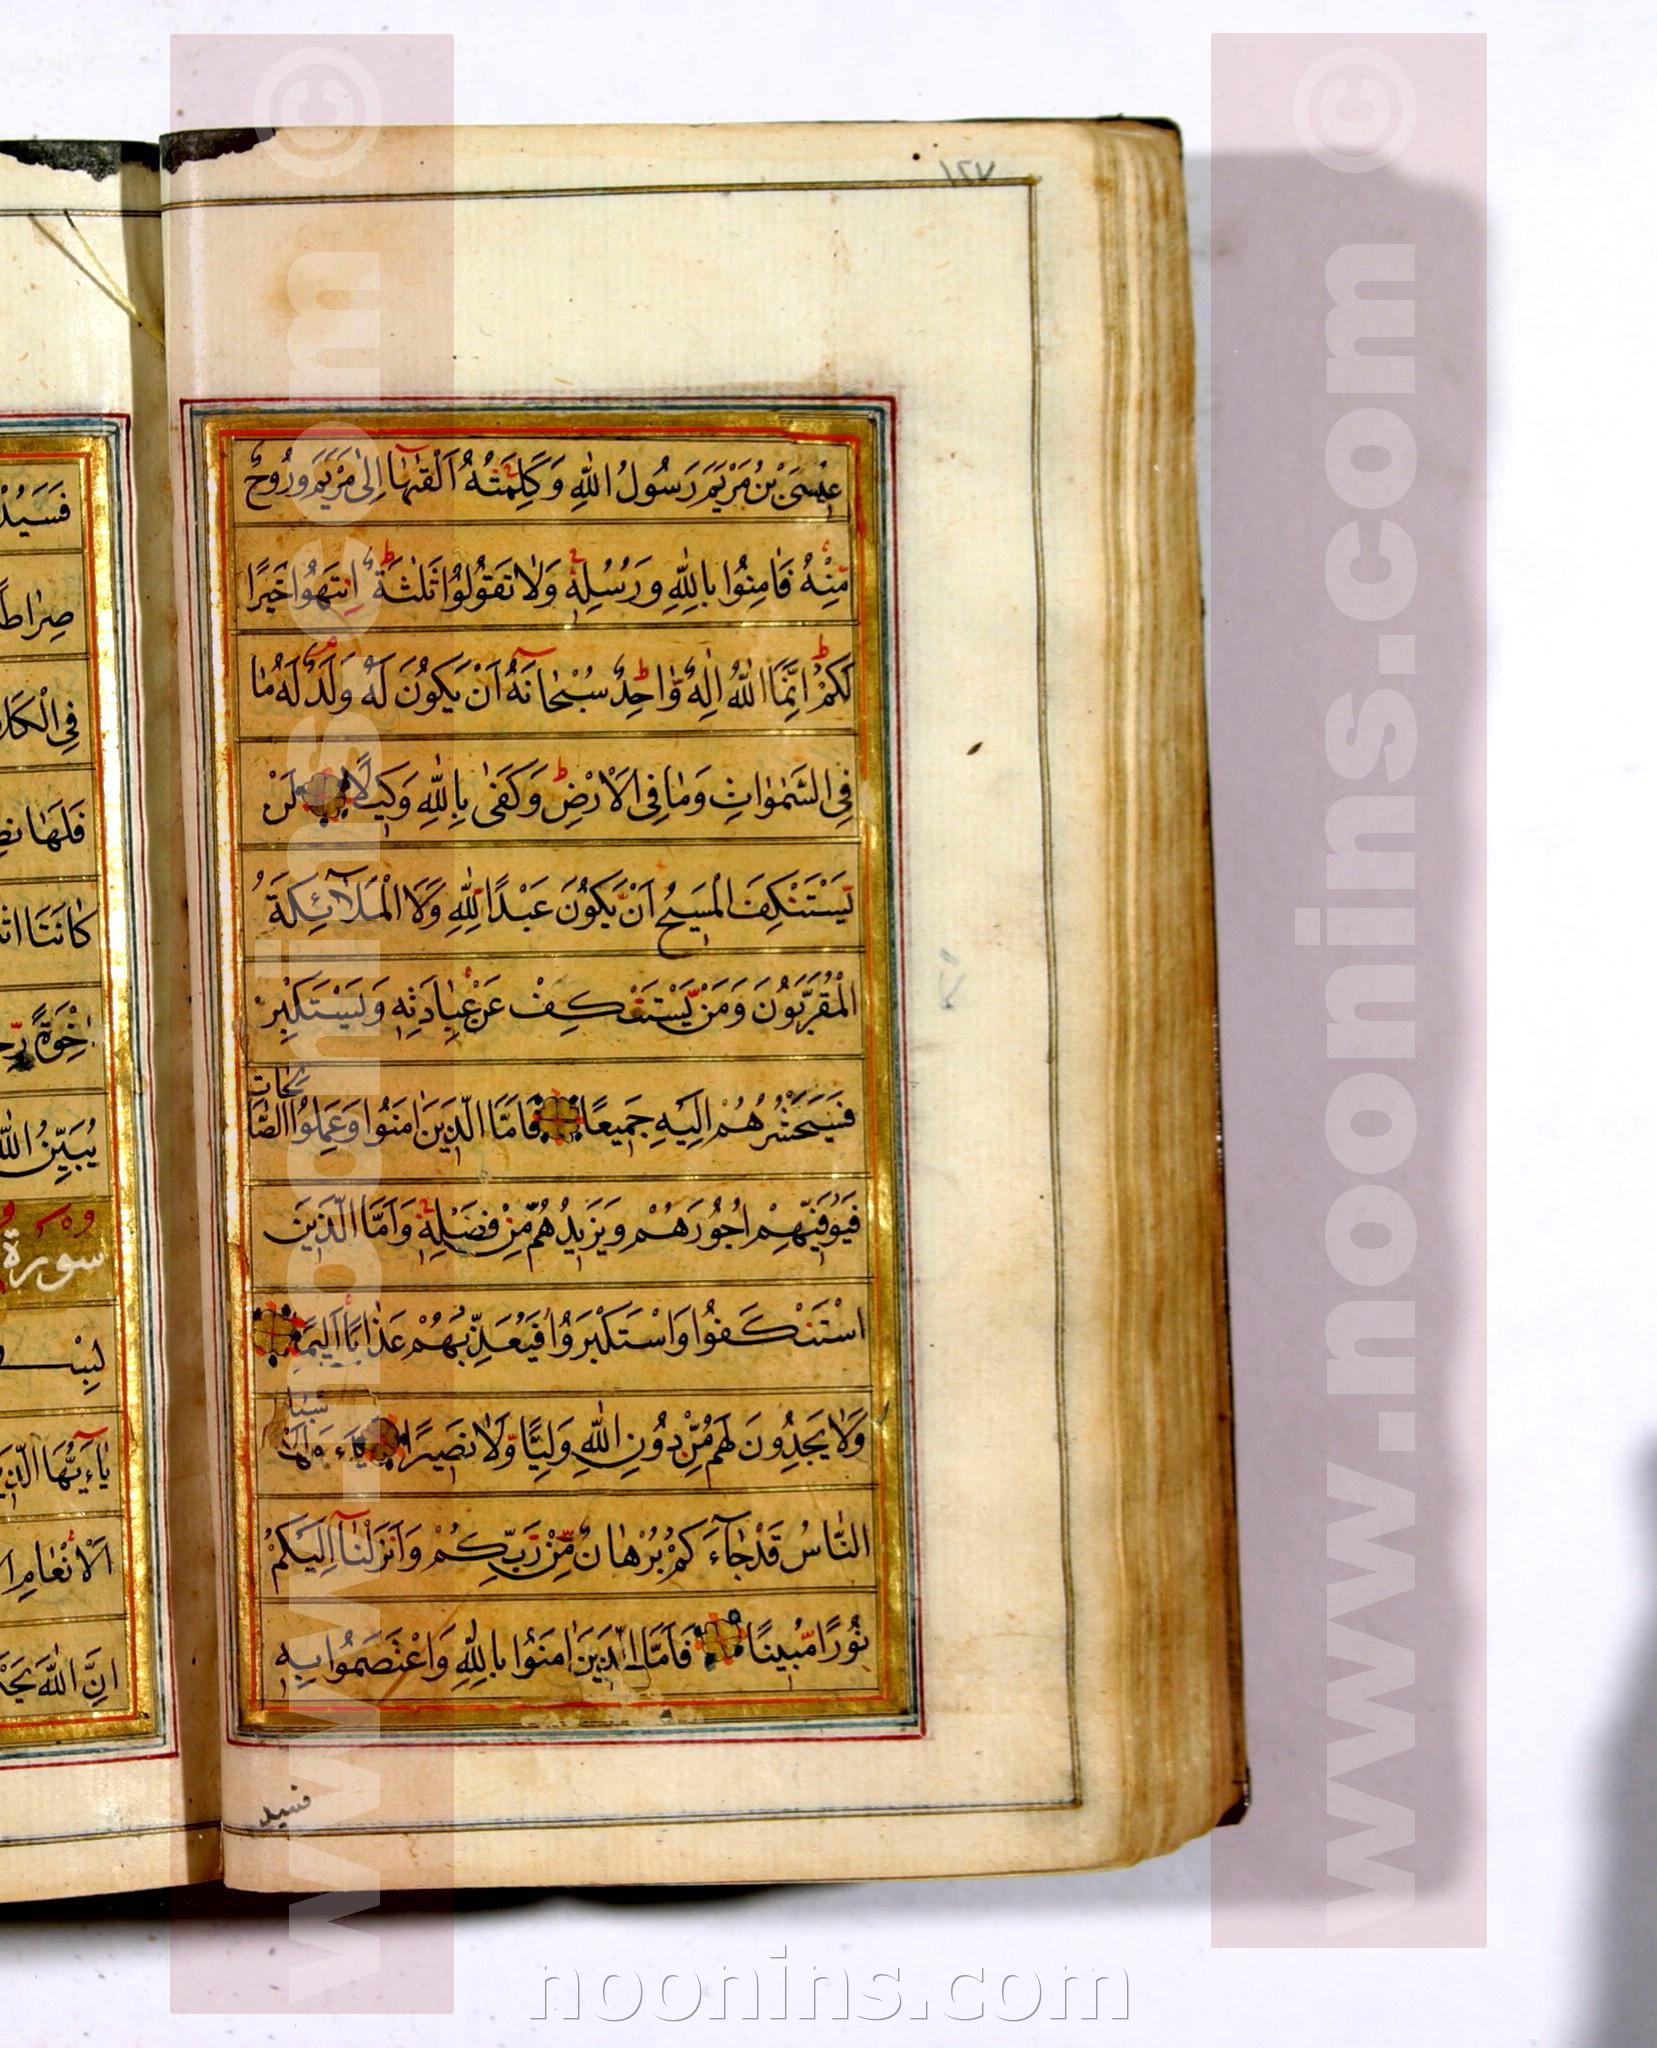 ١٢٧
عِيْسَى بْنُ مَرْيَمَ رَسُولُ اللّٰهِ وَكَلِمَتُهُ اَلْقٰيهٰا اِلىٰ مَرْيَمَ وَرُوحٌ
مِنْهُ فَاٰمِنُوا بِاللّٰهِ وَرُسُلِهٖ وَلاٰ تَقُولُوْا ثَلٰثَةٌ اِنْتَهُوا خَيْرًا
لَكُمْ اِنَّمَا اللّٰهُ اِلٰهٌ وٰاحِدٌ سُبْحٰانَهُ اَنْ يَكُونَ لَهُ وَلَدٌ لَهُ مٰا
فِى السَّمٰوٰاتِ وَمٰا فِى الاَرْضِ وَكَفٰى بِاللّٰهِ وَكِيلًا لَنْ
يَسْتَنْكِفَ الْمَسِيحُ اَنْ يَكُونَ عَبْدًا لِلّٰهِ وَلَا الْمَلآئِكَةُ
الْمُقَرَّبُونَ وَمَنْ يَسْتَنْكِفْ عَنْ عِبٰادَتِهٖ وَيَسْتَكْبِرْ
فَسَيَحْشُرُهُمْ اِلَيْهِ جَمِيعًا فَاَمَّا الَّذِينَ اٰمَنُوا وَعَمِلُوا الصّٰالحات
فَيُوَفِّيهِمْ اُجُورَهُمْ وَيَزِيدُهُمْ مِنْ فَضْلِهٖ وَاَمَّا الَّذِينَ
اسْتَنْكَفُوا وَاسْتَكْبَرُوا فَيُعَذِّبُهُمْ عَذٰابًا اَلِيمًا
وَلاٰ يَجِدُونَ لَهُمْ مِنْ دُونِ اللّٰهِ وَلِيًّا وَلاٰ نَصِيرًا يٰاءَيُّهَا
النّٰاسُ قَدْ جٰآءَكُمْ بُرْهٰانٌ مِنْ رَبِّكُمْ وَاَنْزَلْنٰآ اِلَيْكُمْ
نُورًا مُبِينًا فَاَمَّا الَّذِينَ اٰمَنُوا بِاللّٰهِ وَاعْتَصَمُوا بِهٖ
فسيد
صِرٰاطًا
فَلَهٰا
كٰانَتَا
اِخْوَةً
يُبَيِّنُ اللّٰهُ
سورة
يٰاءَيُّهَا
الاَنْعٰامِ
اِنَّ اللّٰهَ
www.noonins.com ©
www.noonins.com ©
noonins.com